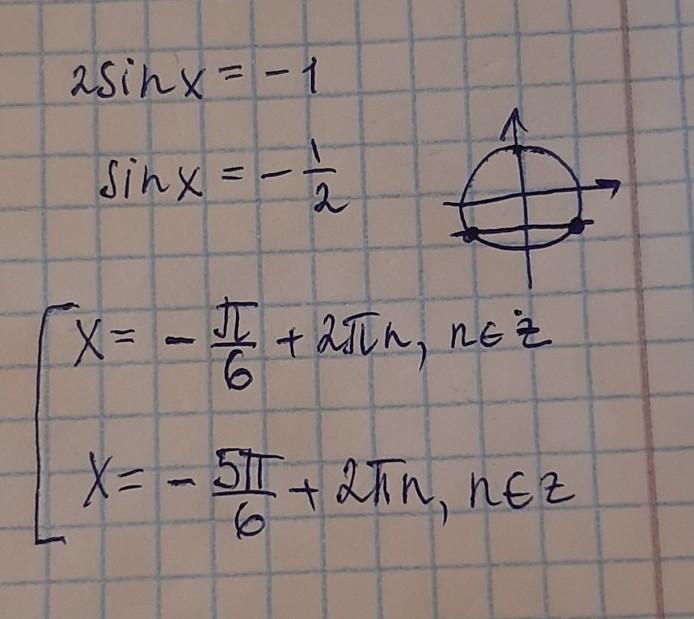 2sinx = -1
sinx = -1/2
x = -π/6 + 2πn, n∈z
x = -5π/6 + 2πn, n∈z